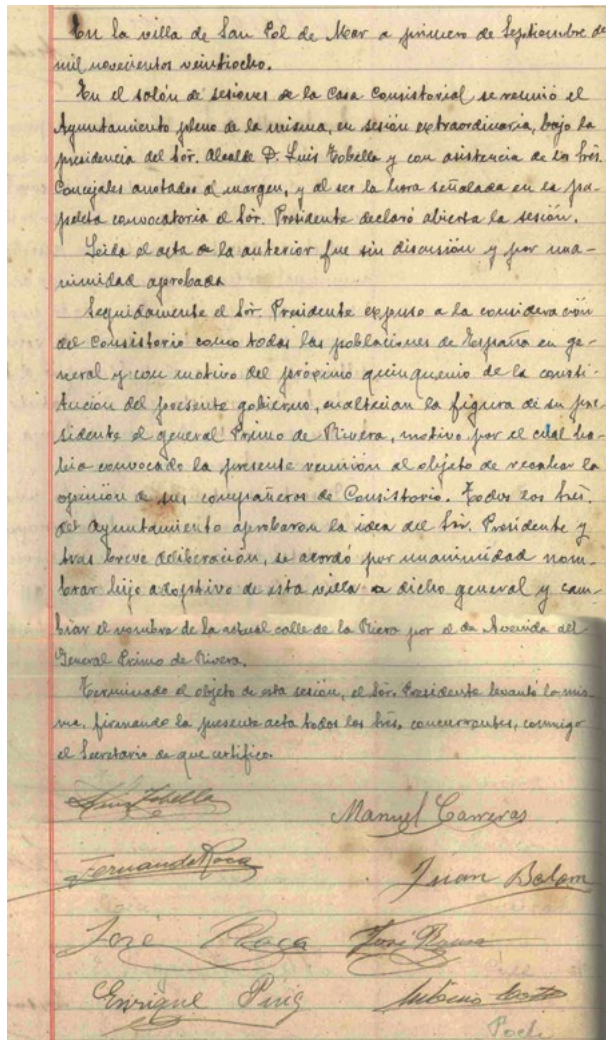 En la villa de San Pol de Mar a primero de Septiembre de
mil novecientos veintiocho.
En el salón de sesiones de la Casa Consistorial se reunió el
Ayuntamiento pleno de la misma, en sesión extraordinaria, bajo la
presidencia del Sór. Alcalde D. Luis Tobella y con asistencia de los Srés.
Concejales anotados al margen, y al ser la hora señalada en la pa-
peleta convocatoria el Sór. Presidente declaró abierta la sesión.
Leida el acta de la anterior fue sin discusión y por una-
nimidad aprobada
Seguidamente el Sór. Presidente expuso a la consideración
del Consistorio como todas las poblaciones de España en ge-
neral y con motivo del próximo quinquenio de la consti-
tución del presente gobierno, enaltecian la figura de su pre-
sidente el general Primo de Rivera, motivo por el cual ha-
bia convocado la presente reunión al objeto de recabar la
opinión de sus compañeros de Consistorio. Todos los Srés.
del Ayuntamiento aprobaron la idea del Sór. Presidente y
tras breve deliberación, se acordó por unanimidad nom-
brar hijo adoptivo de esta villa a dicho general y cam-
biar el nombre de la actual calle de la Riera por el de Avenida del
General Primo de Rivera.
Terminado el objeto de esta sesión, el Sór. Presidente levantó la mis-
ma, firmando la presente acta todos los Srés. concurrentes, conmigo
el Secretario de que certifico.
Luis Tobella
Manuel Carreras
Fernando Roca
Juan Belam
José Roca José
Enrique Puig Antonio
Poch